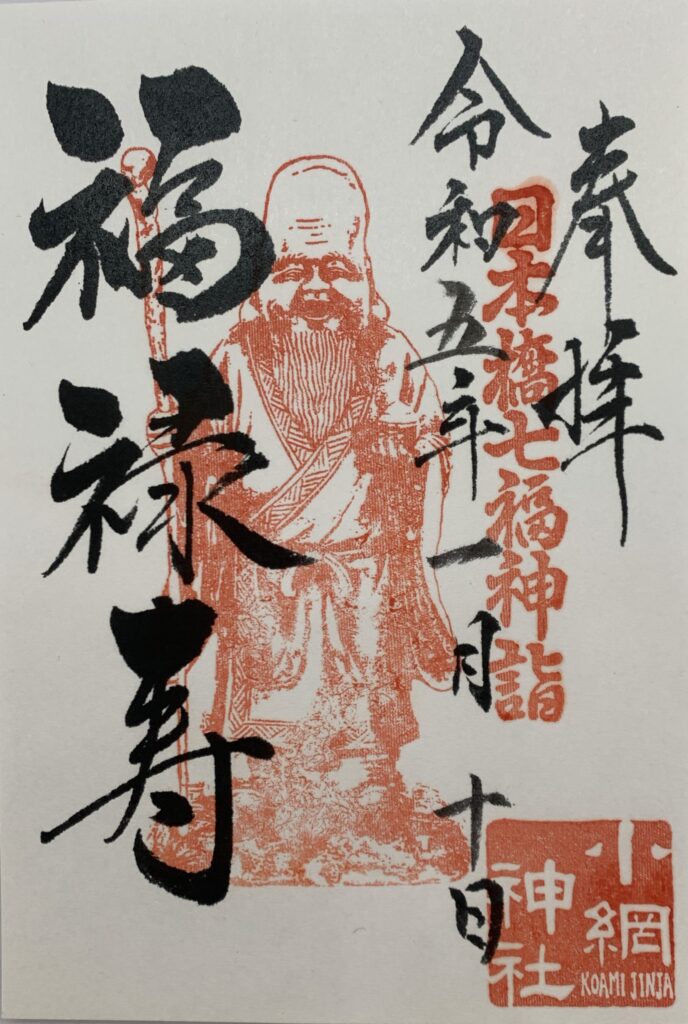 奉拝
日本橋七福神詣
令和五年一月十日
福禄寿
小網
神社
KOAMI JINJA